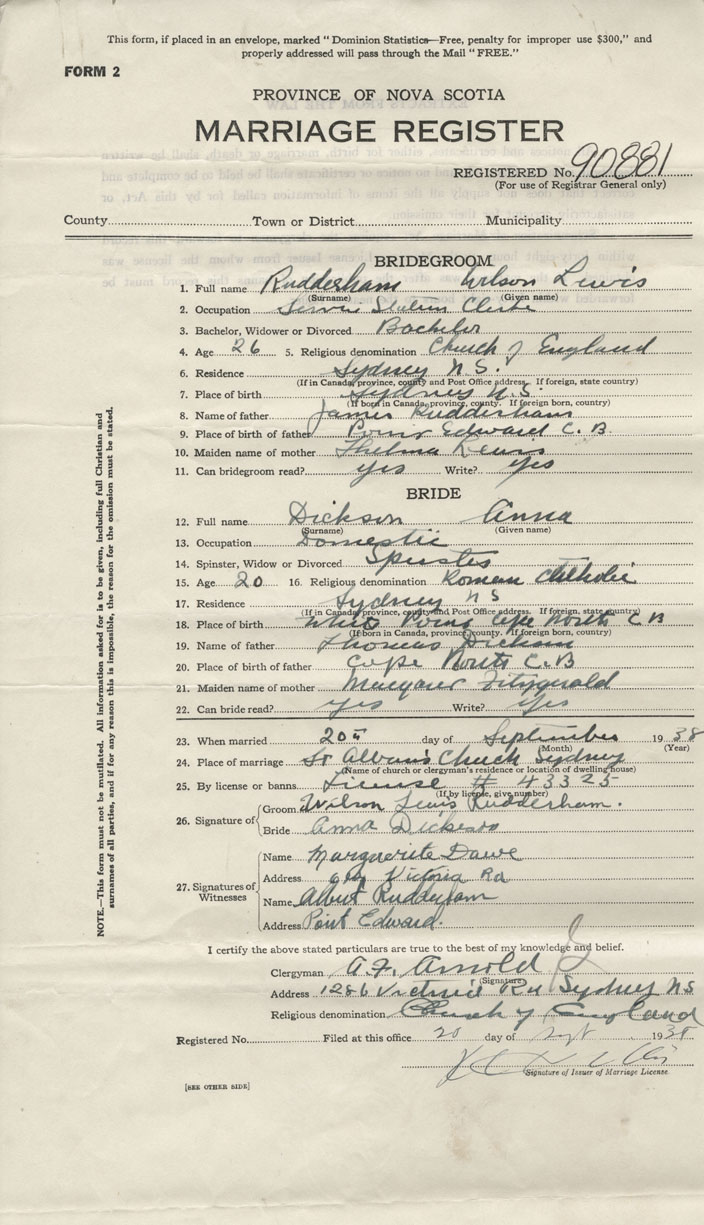 This form, if placed in an envelope, marked "Dominion Statistics—Free, penalty for improper use $300," and
properly addressed will pass through the Mail "FREE."
FORM 2
PROVINCE OF NOVA SCOTIA
MARRIAGE REGISTER
REGISTERED No. 90881
(For use of Registrar General only)
County Town or District Municipality
BRIDEGROOM
1. Full name Rudderham Wilson Lewis
(Surname) (Given name)
2. Occupation Service Station Clerk
3. Bachelor, Widower or Divorced Bachelor
4. Age 26 5. Religious denomination Church of England
6. Residence Sydney N.S.
(If in Canada, province, county and Post Office address. If foreign, state country)
7. Place of birth Sydney N.S.
(If born in Canada, province, county. If foreign born, country)
8. Name of father James Rudderham
9. Place of birth of father Point Edward C.B.
10. Maiden name of mother Thelma
11. Can bridegroom read? yes Write? yes
BRIDE
12. Full name Dickson Anna
(Surname) (Given name)
13. Occupation Domestic
14. Spinster, Widow or Divorced Spinster
15. Age 20 16. Religious denomination Roman Catholic
17. Residence Sydney N S
(If in Canada, province, county and Post Office address. If foreign, state country)
18. Place of birth White Point Cape North C B
(If born in Canada, province, county. If foreign born, country)
19. Name of father Thomas Dickson
20. Place of birth of father Cape North C.B
21. Maiden name of mother Margaret Fitzgerald
22. Can bride read? yes Write? yes
23. When married 20th day of September 1938
(Month) (Year)
24. Place of marriage St Alban's Church Sydney
(Name of church or clergyman's residence or location of dwelling house)
25. By license or banns License # 43325
(If by license, give number)
26. Signature of
Groom Wilson Lewis Rudderham.
Bride Anna Dickson
27. Signatures of Witnesses
Name Marguerite Dawe
Address Victoria Rd
Name Albert Rudderham
Address Point Edward.
I certify the above stated particulars are true to the best of my knowledge and belief.
Clergyman A.F. Arnold
(Signature)
Address 1286 Victoria Rd Sydney NS
Religious denomination Church of England
Registered No. Filed at this office 20 day of Sept 1938
Signature of Issuer of Marriage License.
[SEE OTHER SIDE]
NOTE.—This form must not be mutilated. All information asked for is to be given, including full Christian and
surnames of all parties, and if for any reason this is impossible, the reason for the omission must be stated.